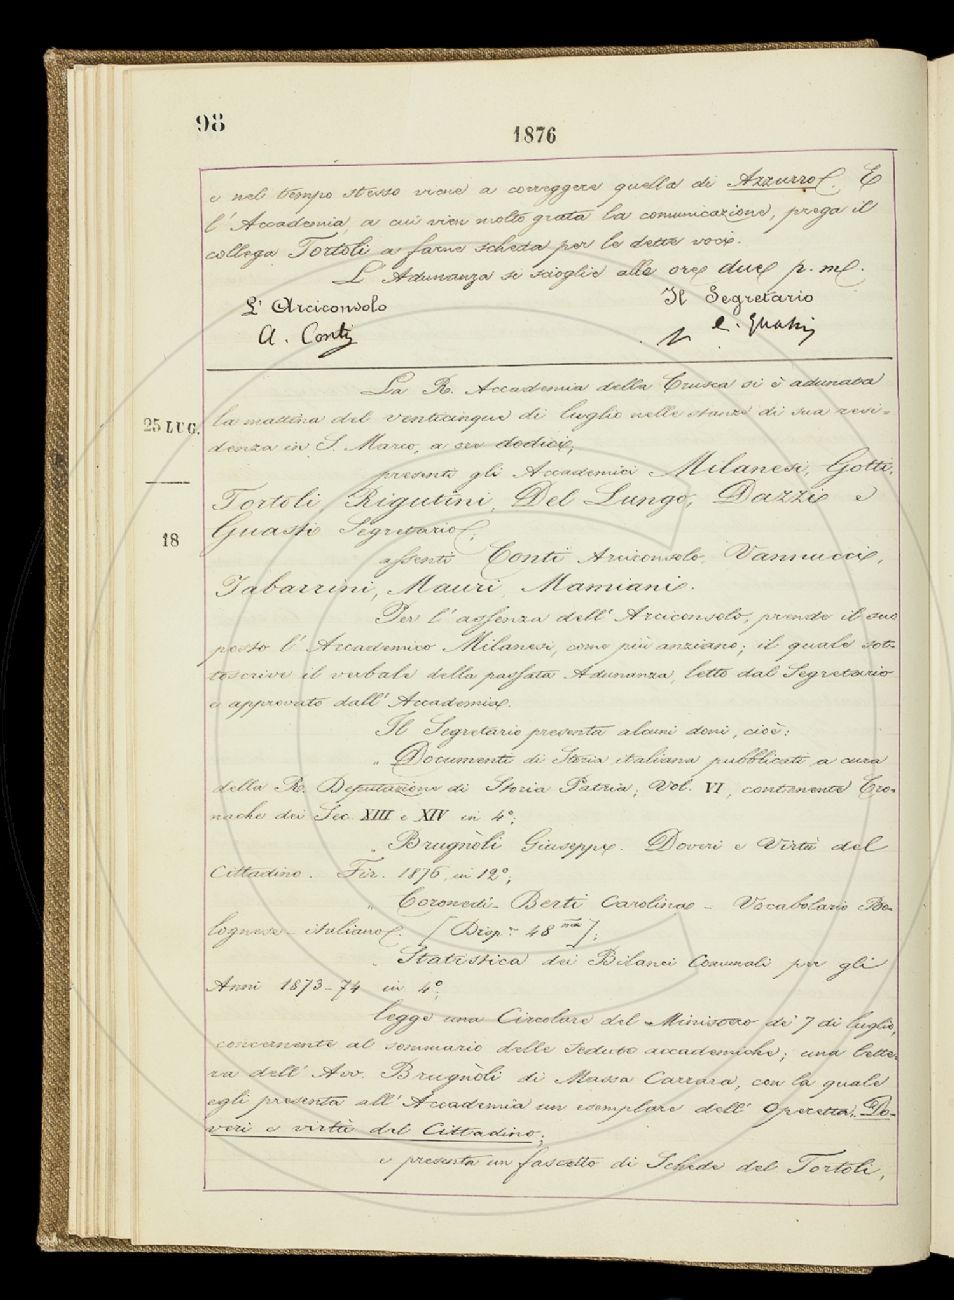 98
1876
e nel tempo stesso viene a correggere quella di Azzurro. E
l'Accademia, a cui vien molto grata la comunicazione, prega il
collega Tortoli a farne scheda per le dette voci.
L'Adunanza si scioglie alle ore due p. m.
L'Arciconsolo
Il Segretario
A. Conti
C. Guasti
La R. Accademia della Crusca si è adunata
25 LUG.
la mattina del venticinque di luglio nelle stanze di sua resi=
denza in S. Marco, a ore dodici;
presenti gli Accademici Milanesi, Gotti,
Tortoli, Rigutini, Del Lungo, Dazzi e
18
Guasti Segretario;
assenti Conti Arciconsolo, Vannucci,
Tabarrini, Mauri, Mamiani.
Per l'assenza dell'Arciconsolo, prende il suo
posto l'Accademico Milanesi, come più anziano; il quale sot=
toscrive il verbale della passata Adunanza, letto dal Segretario
e approvato dall'Accademia.
Il Segretario presenta alcuni doni, cioè:
" Documenti di Storia italiana pubblicati a cura
della R. Deputazione di Storia Patria; Vol. VI, contenente Cro=
nache dei Sec. XIII e XIV in 4°;
" Brugnòli Giuseppe. Doveri e Virtù del
Cittadino. Fir. 1876, in 12°;
" Coronedi-Berti Carolina - Vocabolario Bo-
lognese-italiano. [Disp. 48 ma];
" Statistica dei Bilanci Comunali per gli
Anni 1873-74 in 4°;
legge una Circolare del Ministero de' 7 di luglio,
concernente al sommario delle sedute accademiche; una lette-
ra dell'Avv. Brugnòli di Massa Carrara, con la quale
egli presenta all'Accademia un esemplare dell'Operetta, Do-
veri e virtù del Cittadino;
e presenta un fascetto di Schede del Tortoli,